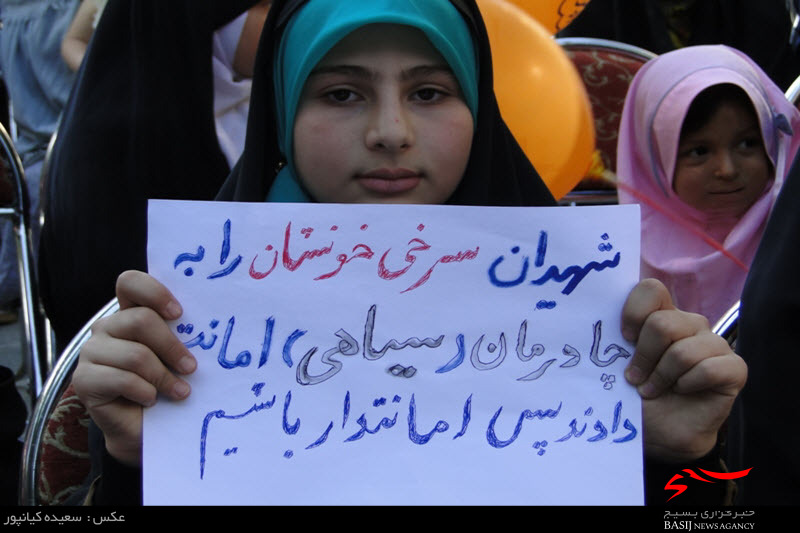 شهیدان سرخی خونشان را به
چادرمان (سیاهی) امانت
دادند پس امانتدار باشیم
عکس : سعیده کیانپور
خبرگزاری بسیج
BASIJ NEWS AGANCY